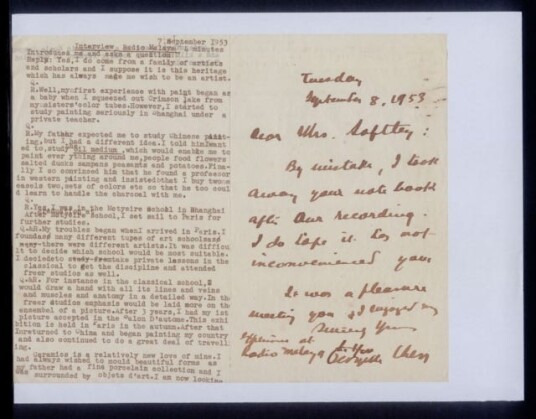 7 September 1953
Interview, Radio Malaya minutes
Introduces me and asks a question
Reply: Yes, I do come from a family of artists
and scholars and I suppose it is this heritage
which has always made me wish to be an artist.
Q.
R.Well,myfirst experience with paint began as
a baby when I squeezed out Crimson Lake from
mysisters'color tubes.However,I started to
study painting seriously in Shanghai under a
private teacher.
Q.
R.My father expected me to study Chinese paint-
ing, but I had a different idea.I told himIwant
ed to,study oil medium,which would enable me to
paint ever ything around me,people food flowers
salted ducks sampans peasants and potatoes.Fina-
lly I so convinced him that he found a professor
in western painting and insistedthatI buy twoe
easels two,sets of colors etc so that he too coul
d learn to handle the charcoal with me.
Q.
R.Yes,I was in the Metyeire School in Shanghai
After Metyeire School,I set sail to Paris for
further studies.
Q.&R.My troubles began whenI arrived in Paris.I
foundas many different types of art schoolsas
there were different artists.It was difficu
lt to decide which school would be most suitable.
I decidedto private lessons in the
classical to get the discipline and attended
freer studios as well.
Q&R. For instance in the classical school,I
would draw a hand with all its lines and veins
and muscles and anatomy in a detailed way.In th
freer studios emphasis would be laid more on th
ensembel of a picture.After 3 years,I had my 1st
picture accepted in the Salon D'automne.This exhi
bition is held in Paris in the autumn.After that
Ireturned to China and began painting my country
and also continued to do a great deal of travell
ing.
Ceramics is a relatively new love of mine.I
had always wished to mould beautiful forms as
my father had a fine porcelain collection and I
was surrounded by objets d'art.I am now looking
Tuesday
September 8, 1953
Dear Mrs.
By mistake, I took
away your note book
after our recording.
I do hope it has not
inconvenienced you
It was a pleasure
meeting you & I enjoyed my
experience at
Radio Malaya
Sincerely Yours
Georgette Chen